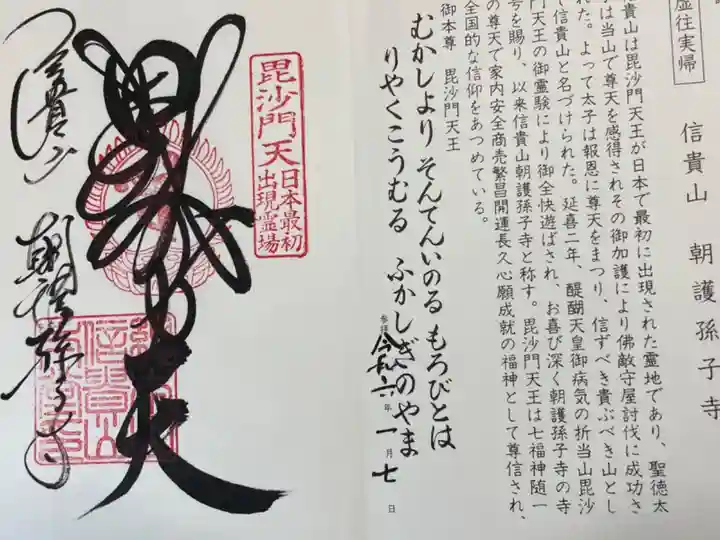 虚往実帰
信貴山 朝護孫子寺
貴山は毘沙門天王が日本で最初に出現された霊地であり、聖徳太
は当山で尊天を感得されその御加護により佛敵守屋討伐に成功さ
れた。よって太子は報恩に尊天をまつり、信ずべき貴ぶべき山とし
て信貴山と名づけられた。延喜二年、醍醐天皇御病気の折当山毘沙
門天王の御霊験により御全快遊ばされ、お喜び深く朝護孫子寺の寺
号を賜り、以来信貴山朝護孫子寺と称す。毘沙門天王は七福神随一
の尊天で家内安全商売繁昌開運長久心願成就の福神として尊信され、
全国的な信仰をあつめている。
御本尊 毘沙門天王
むかしより そんてんいのる もろびとは
りやくこうむる ふかしぎのやま
参拝 令和六年 一月七日
毘沙門天 日本最初
出現霊場
信貴山 朝護孫子寺